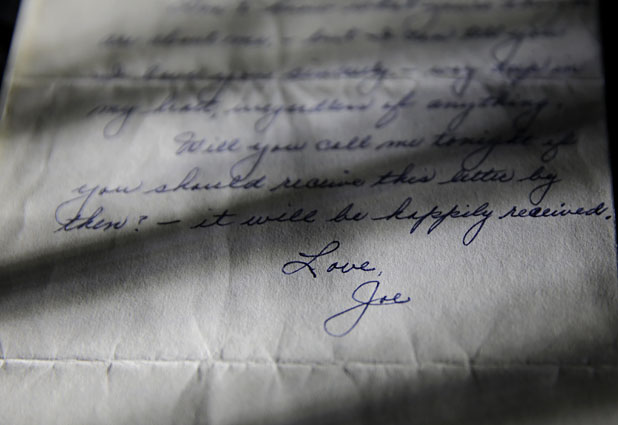 to know what you're
me - but I can tell you
I love you sincerely - way deep in
my heart, regardless of anything.
Will you call me tonight if
you should receive this letter by
then? - it will be happily received.
Love,
Joe